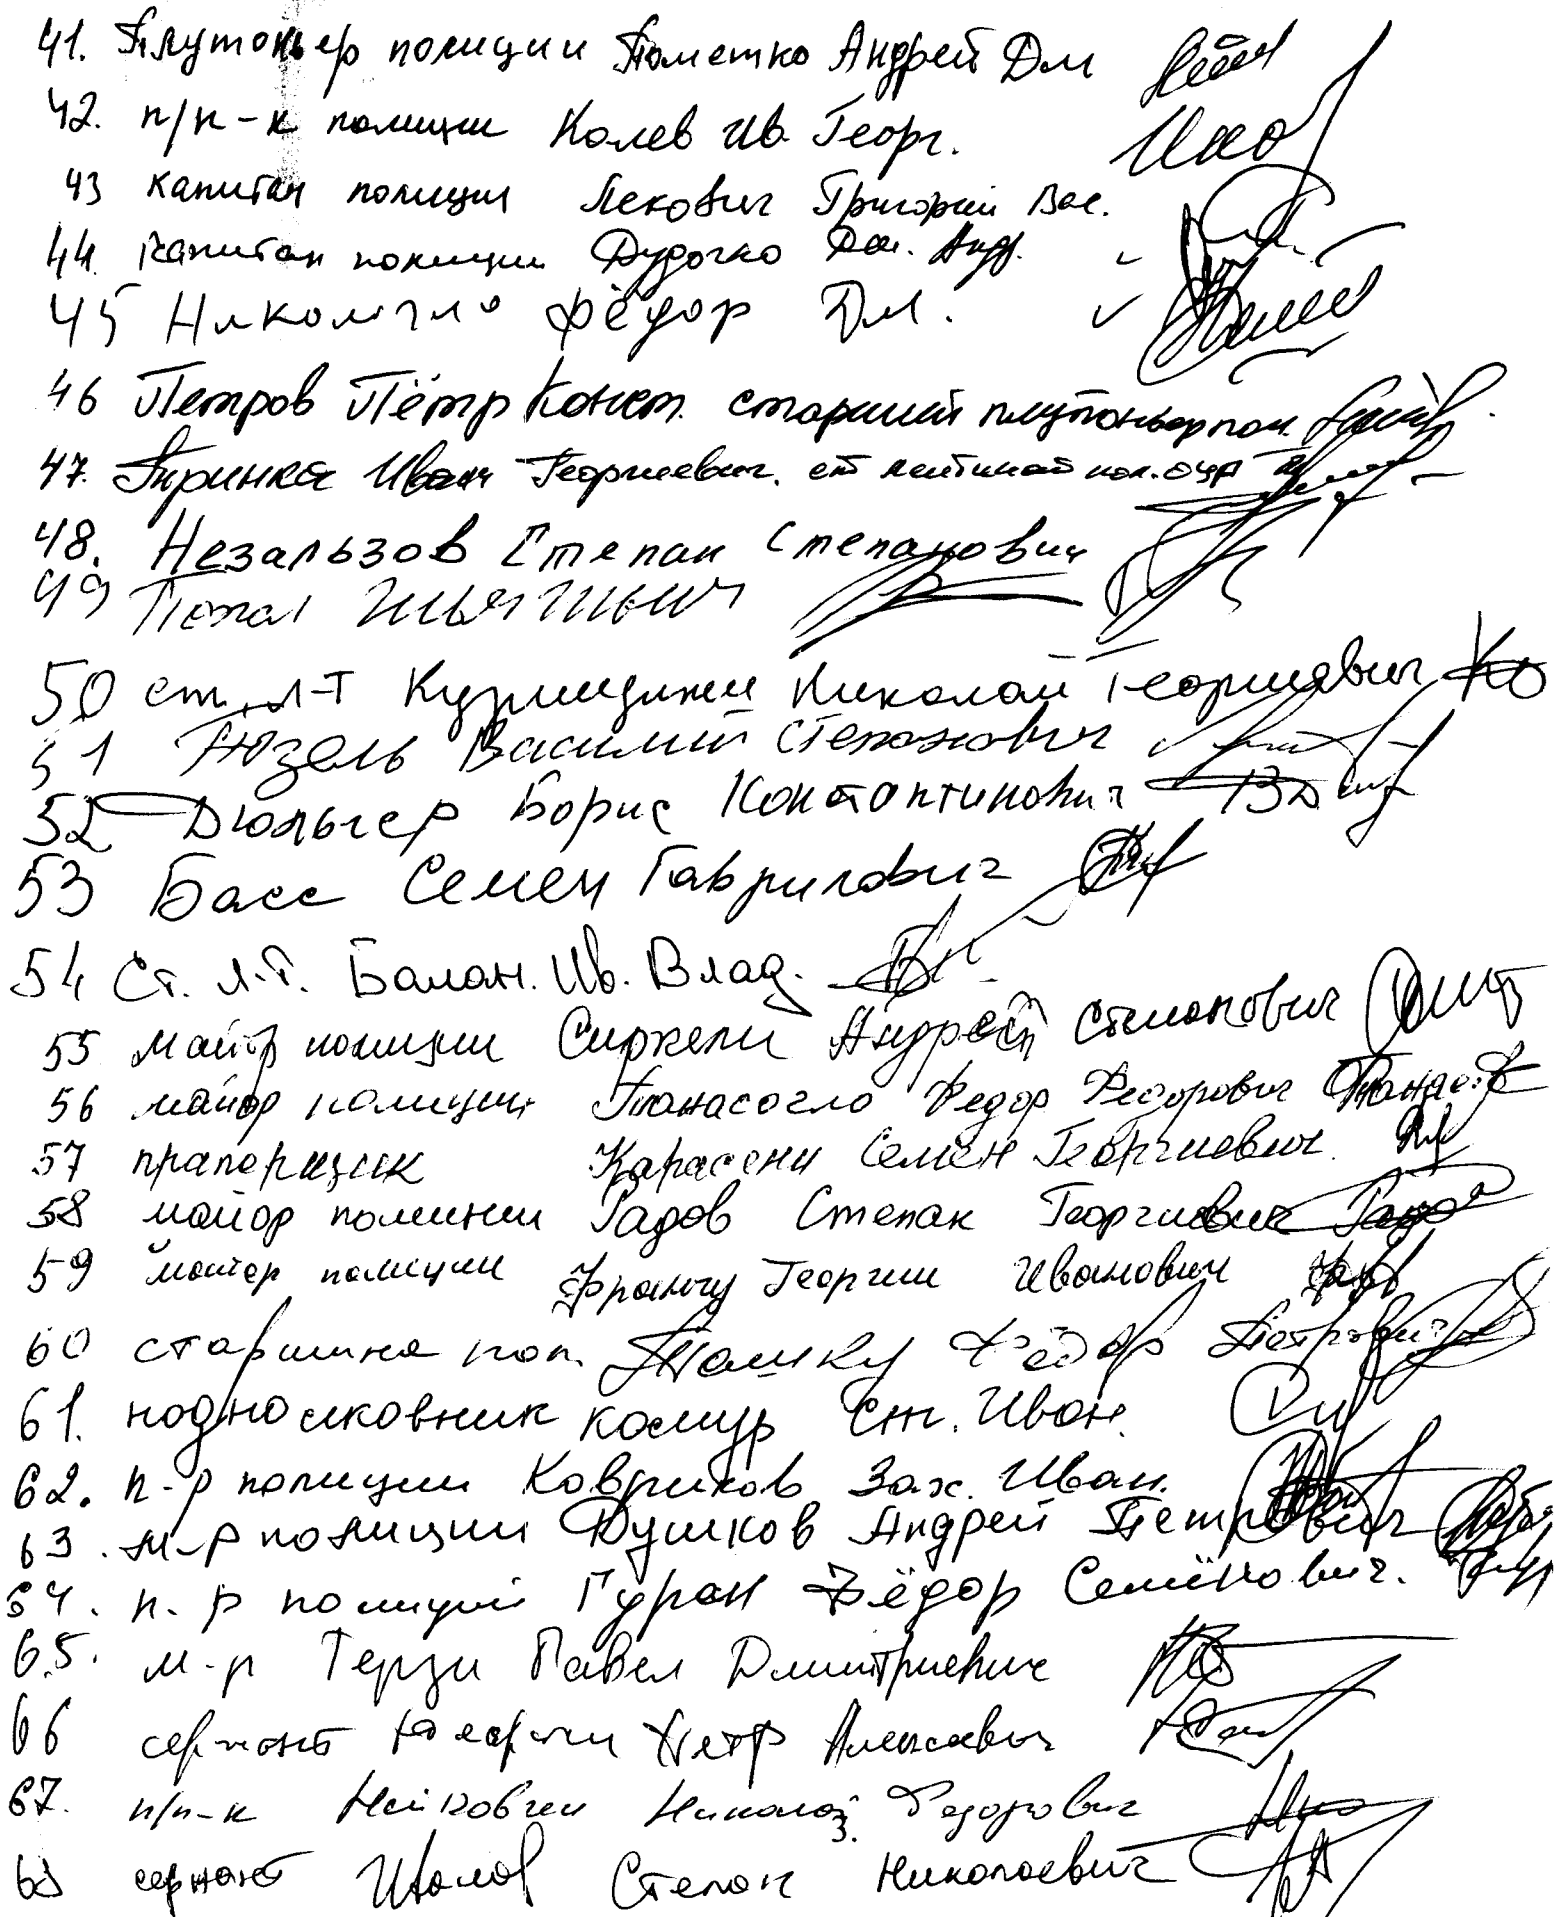 41. Плутоньер полиции Пометко Андрей Дм
42. п/п-к полиции Колев Ив. Георг.
43 капитан полиции Лекович Григорий Вас.
44. капитан полиции Дудочко Дм. Анд.
45 Никологло Фёдор Дм.
46 Петров Пётр Конст. старший плутоньер пол.
47. Киринка Иван Георгиевич. ст лейтинат пол.
48. Незальзов Степан Степанович
49 Ильич
50 ст. л-т Николай Георгиевич
51 Кюзель Василий Степанович
52 Дюльгер Борис Константинович
53 Басс Семен Гаврилович
54 Ст. Л.Т. Балан. Ив. Влад.
55 майор полиции Сиркели Андрей Степанович
56 майор полиции Танасогло Федор Федорович
57 прапорщик Карасени Семен Георгиевич.
58 майор полиции Радов Степан Георгиевич
59 майор полиции Франчу Георгий Иванович
60 старшина пол. Ташку Фёдор Петрович
61. подполковник Комур Ст. Иван.
62. п-р полиции Ковриков Зах. Иван.
63. м-р полиции Душков Андрей Петрович
64. п. р полиции Гуран Фёдор Семёнович.
65. м-р Терзи Павел Дмитриевич
66 сержант Петр Алексеевич
67. п/п-к Найковчи Николай Федорович
68 сержант Шалов Степан Николаевич